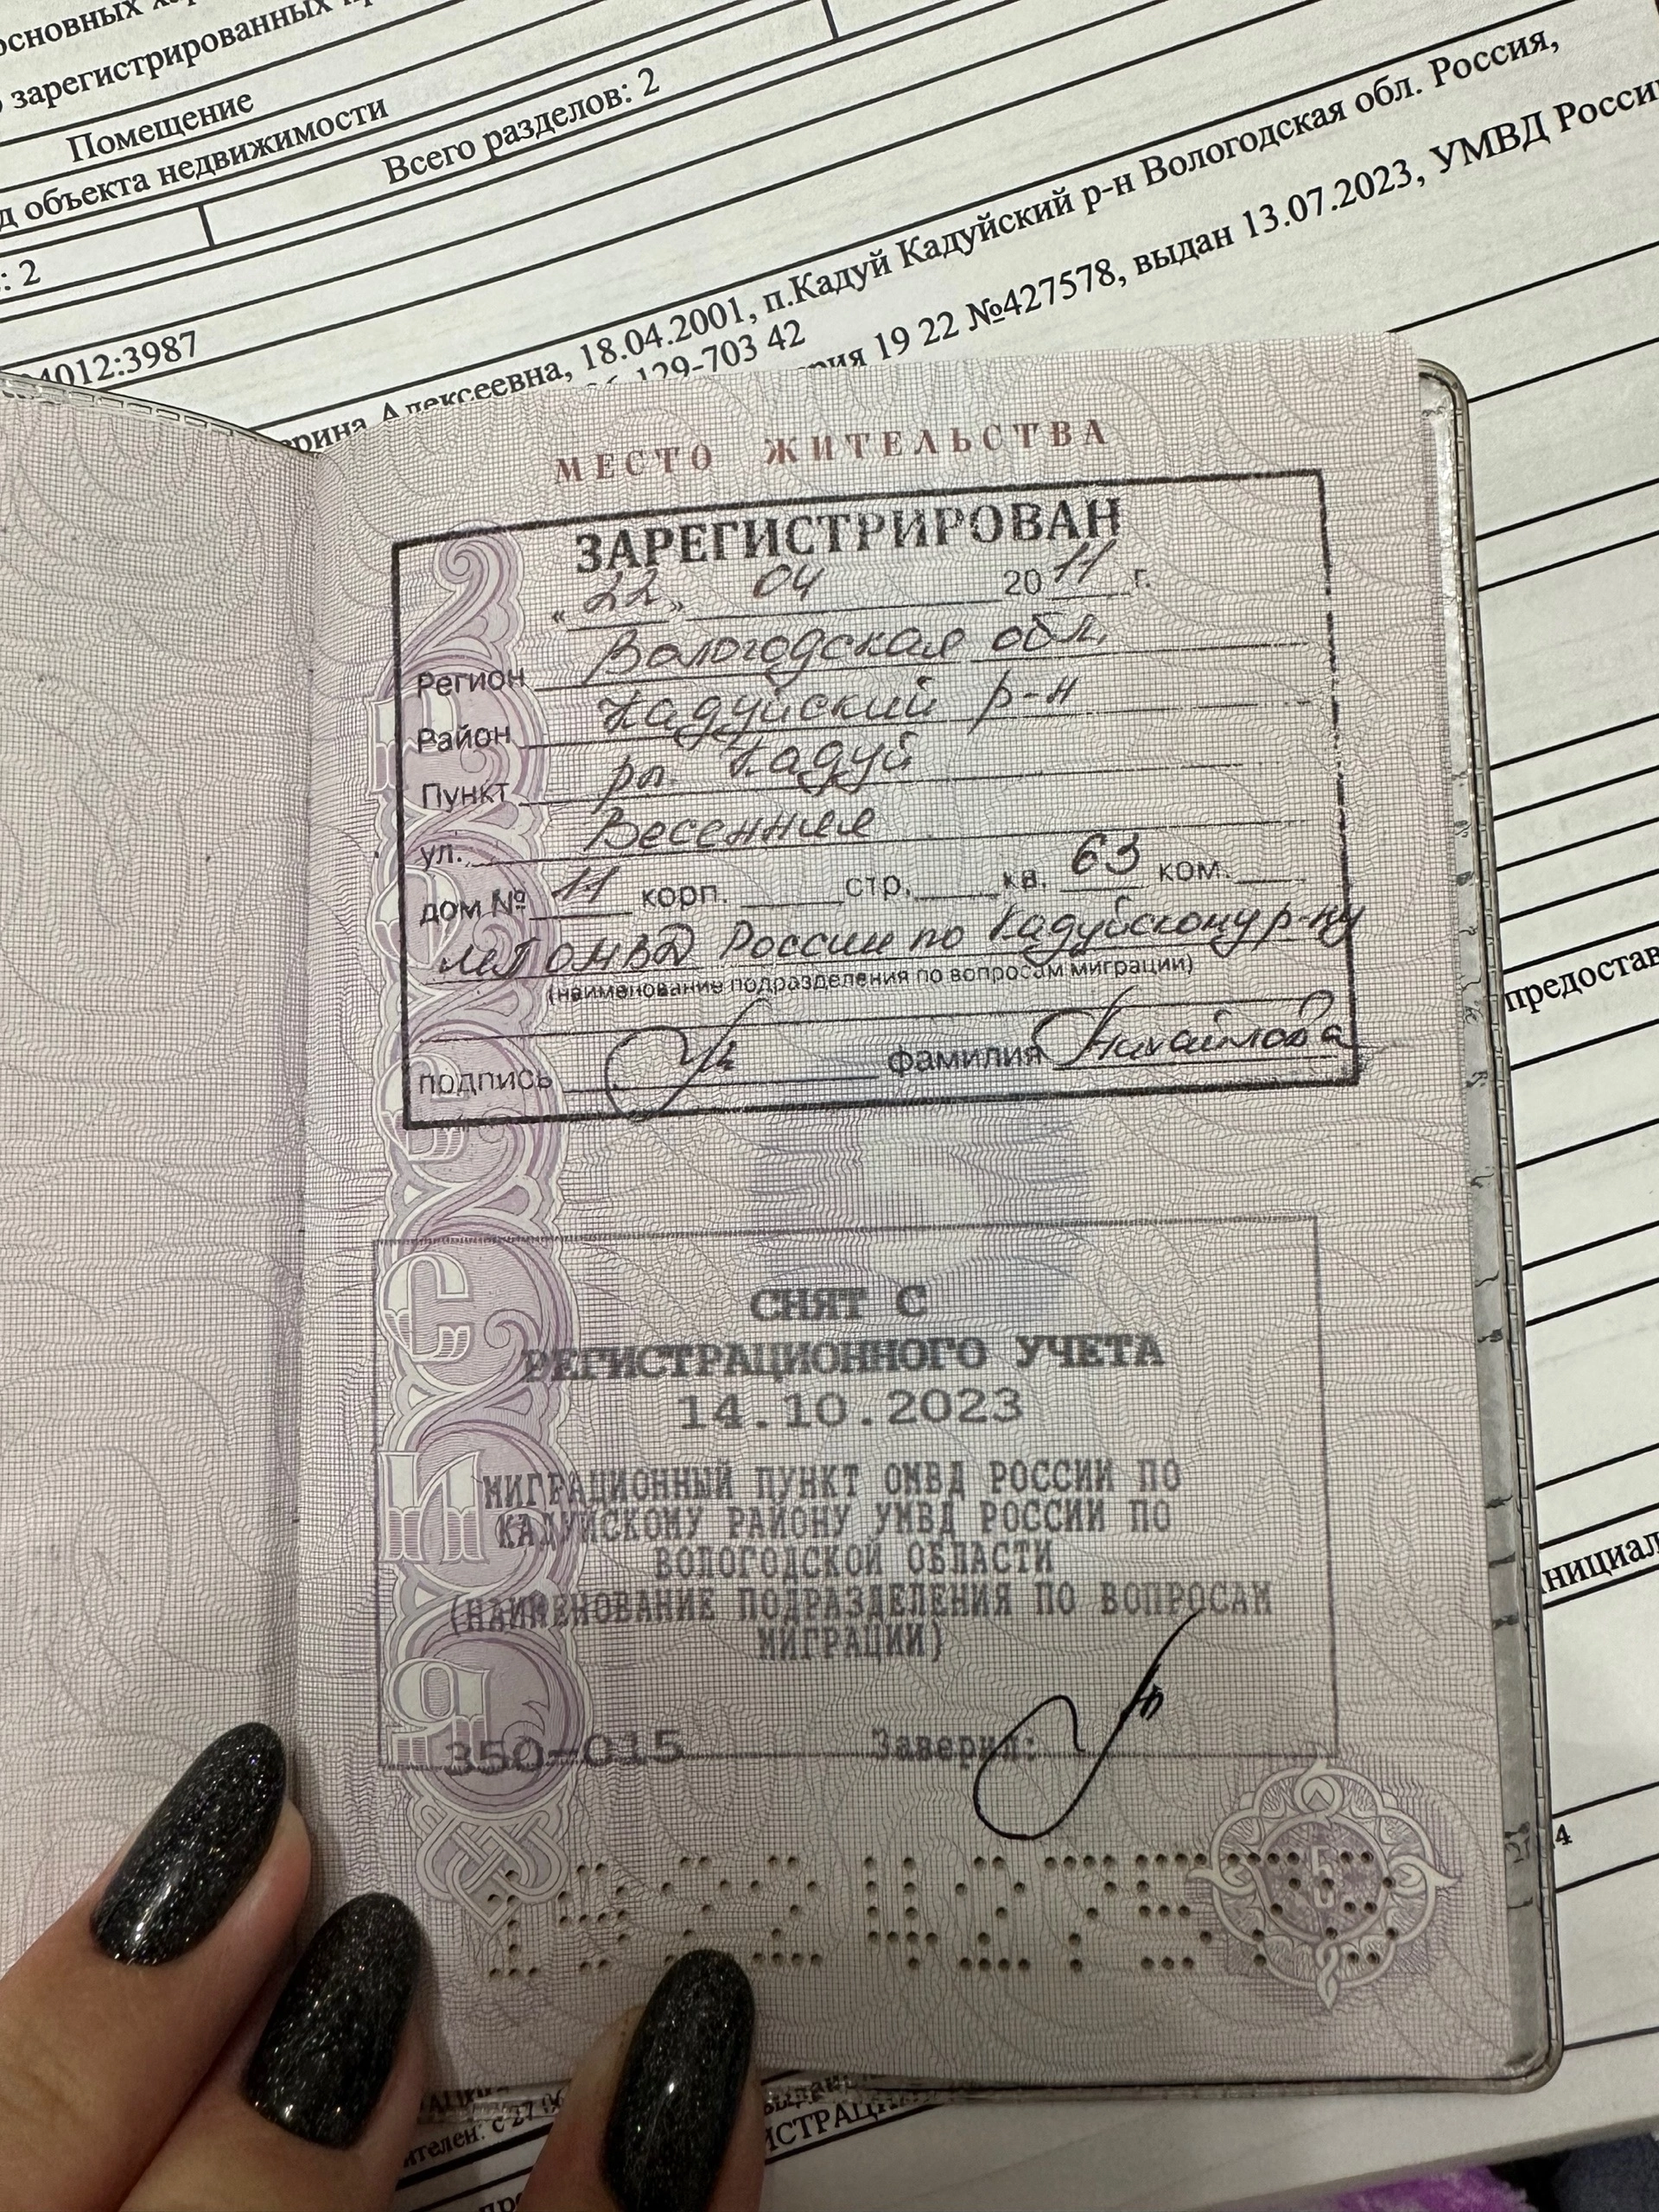 основных
зарегистрированных
Помещение
д объекта недвижимости
Всего разделов: 2
: 2
4012:3987
ерина Алексеевна, 18.04.2001, п.Кадуй Кадуйский р-н Вологодская обл. Россия,
129-703 42
рия 19 22 №427578, выдан 13.07.2023, УМВД России
МЕСТО ЖИТЕЛЬСТВА
ЗАРЕГИСТРИРОВАН
«22» 04 2011 г.
Регион Вологодская обл.
Район Кадуйский р-н
Пункт рп. Кадуй
ул. Весенняя
дом № 11 корп. стр. кв. 63 ком.
МП ОМВД России по Кадуйскому р-ну
(наименование подразделения по вопросам миграции)
подпись фамилия Михайлова
СНЯТ С
РЕГИСТРАЦИОННОГО УЧЕТА
14.10.2023
МИГРАЦИОННЫЙ ПУНКТ ОМВД РОССИИ ПО
КАДУЙСКОМУ РАЙОНУ УМВД РОССИИ ПО
ВОЛОГОДСКОЙ ОБЛАСТИ
(НАИМЕНОВАНИЕ ПОДРАЗДЕЛЕНИЯ ПО ВОПРОСАМ
МИГРАЦИИ)
350-015 Заверил:
РОССИЯ
5
1922427578
предостав
нициал
4
ителен: с 27
ИСТРАЦИ